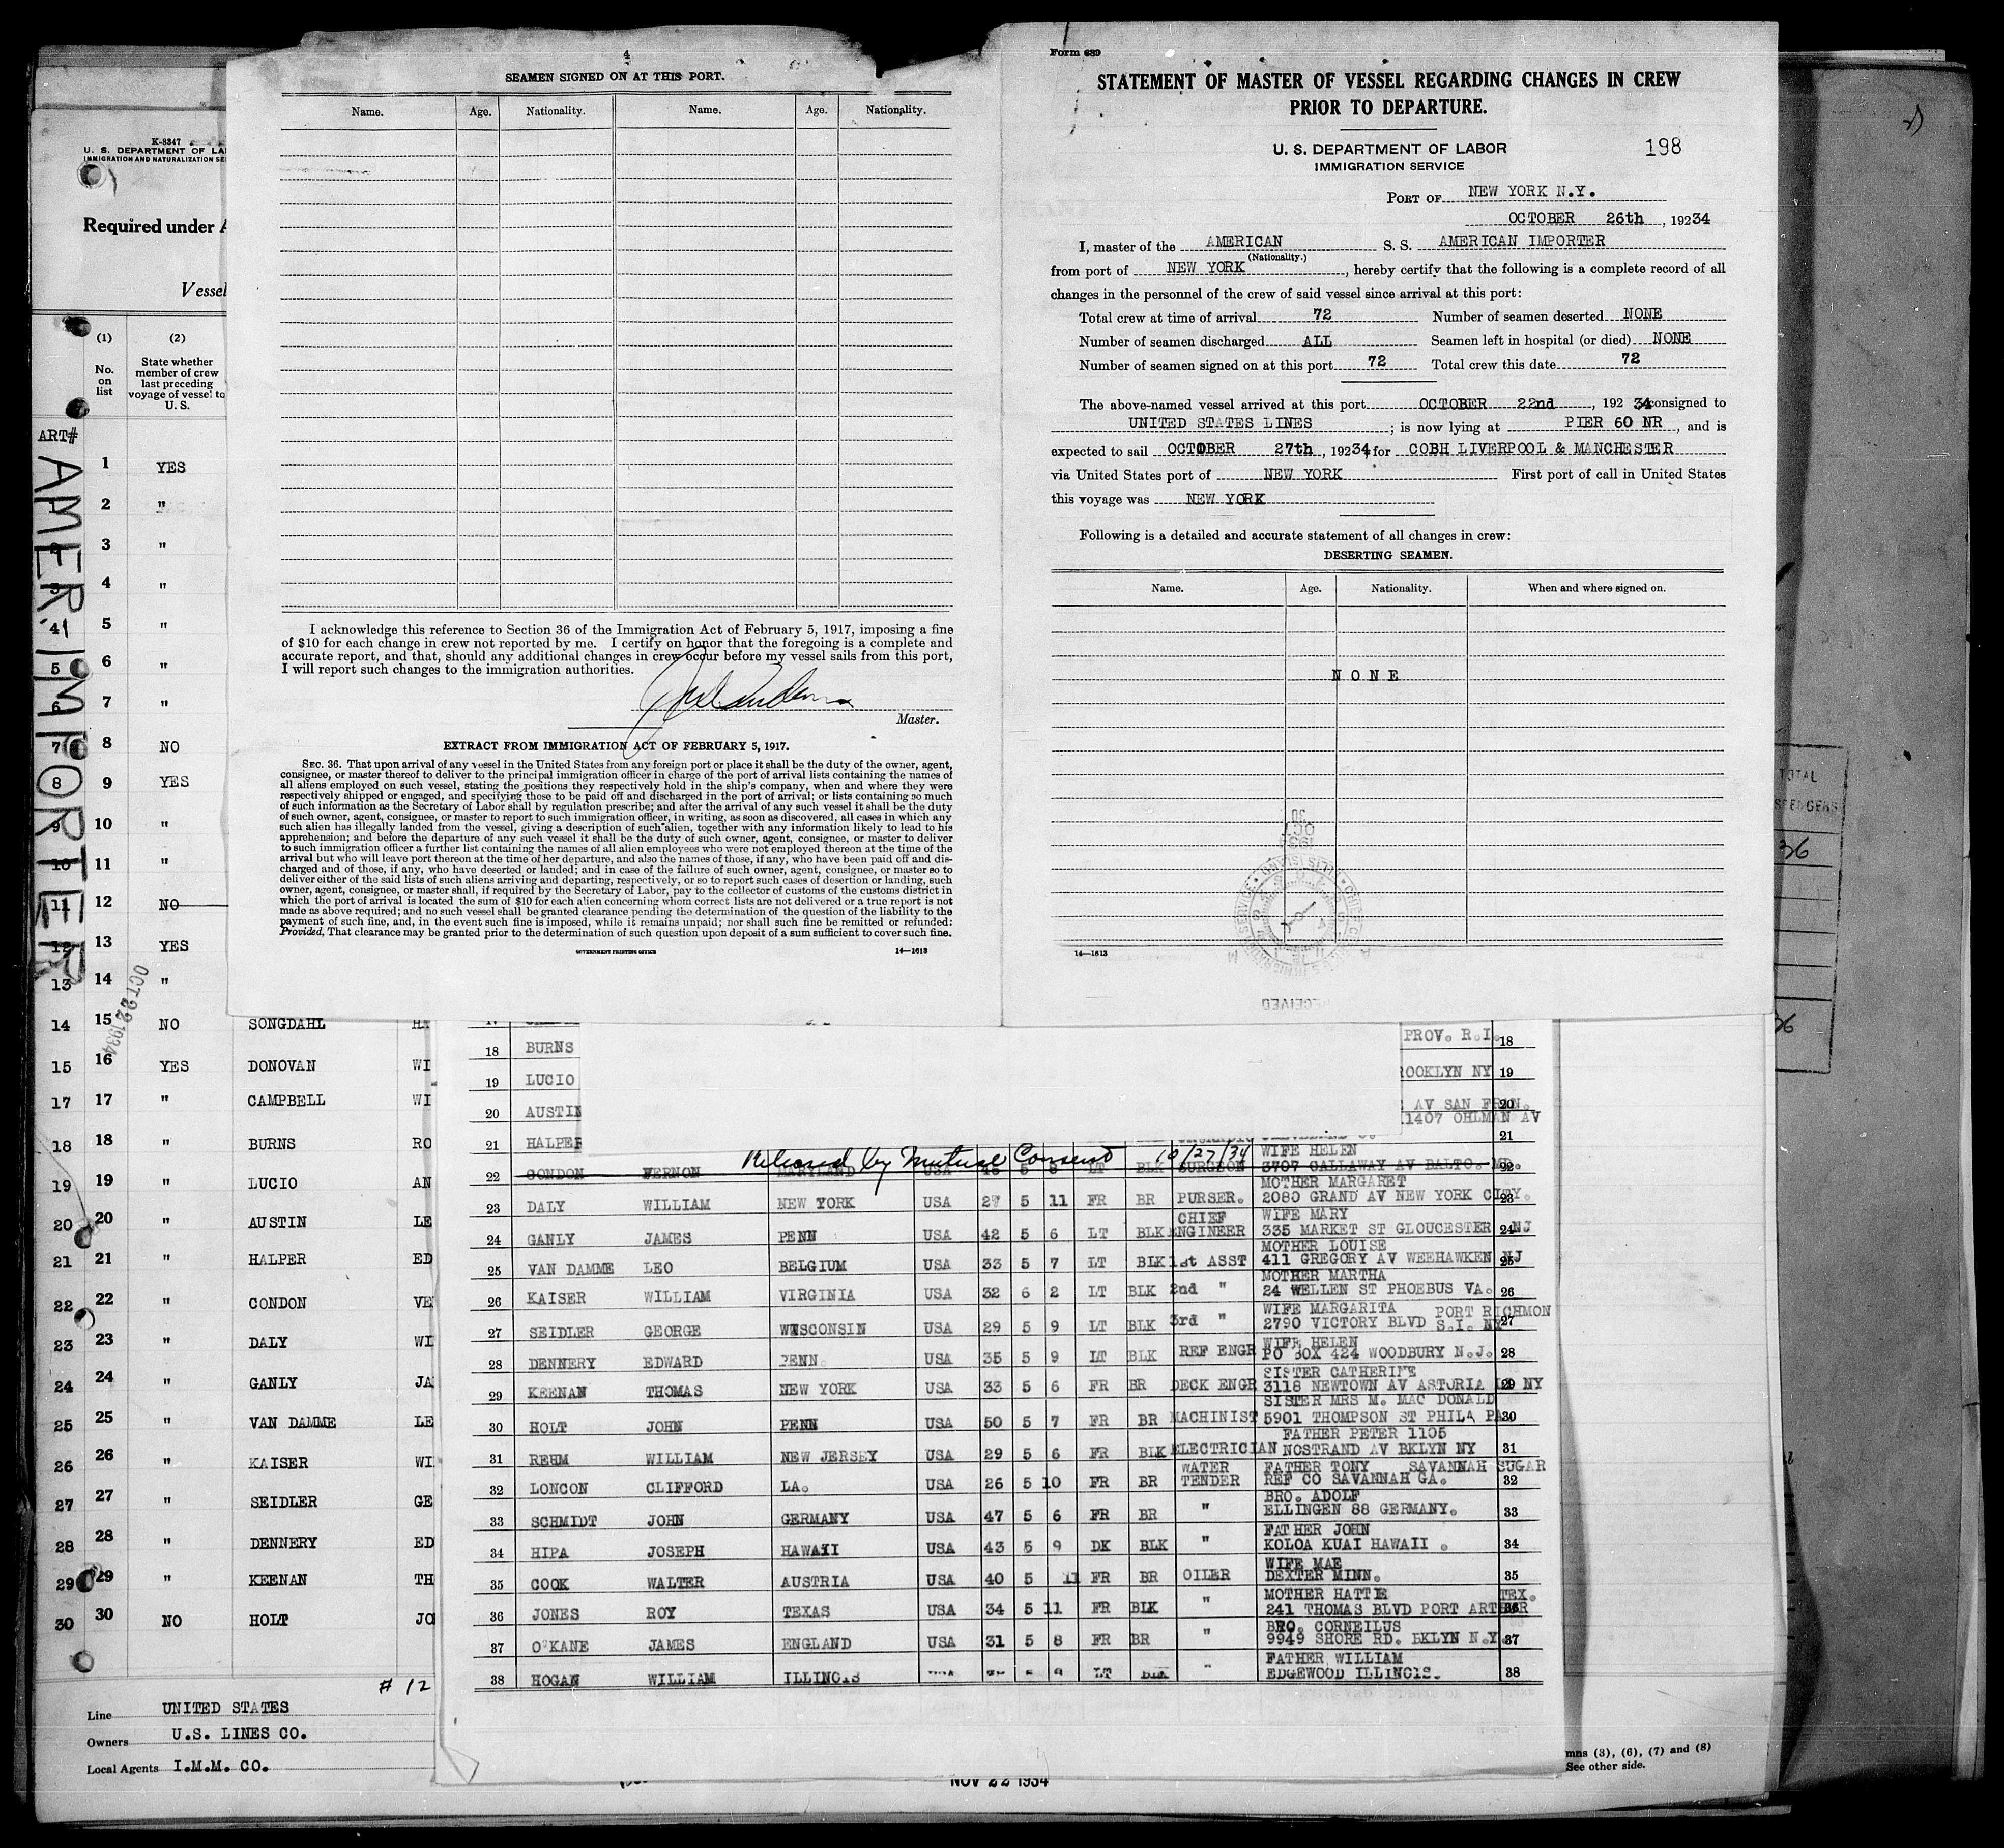 4
SEAMEN SIGNED ON AT THIS PORT.
Name. Age. Nationality. Name. Age. Nationality.
I acknowledge this reference to Section 36 of the Immigration Act of February 5, 1917, imposing a fine
of $10 for each change in crew not reported by me. I certify on honor that the foregoing is a complete and
accurate report, and that, should any additional changes in crew occur before my vessel sails from this port,
I will report such changes to the immigration authorities.
Master.
EXTRACT FROM IMMIGRATION ACT OF FEBRUARY 5, 1917.
SEC. 36. That upon arrival of any vessel in the United States from any foreign port or place it shall be the duty of the owner, agent,
consignee, or master thereof to deliver to the principal immigration officer in charge of the port of arrival lists containing the names of
all aliens employed on such vessel, stating the positions they respectively hold in the ship's company, when and where they were
respectively shipped or engaged, and specifying those to be paid off and discharged in the port of arrival; or lists containing so much
of such information as the Secretary of Labor shall by regulation prescribe; and after the arrival of any such vessel it shall be the duty
of such owner, agent, consignee, or master to report to such immigration officer, in writing, as soon as discovered, all cases in which any
such alien has illegally landed from the vessel, giving a description of such alien, together with any information likely to lead to his
apprehension; and before the departure of any such vessel it shall be the duty of such owner, agent, consignee, or master to deliver
to such immigration officer a further list containing the names of all alien employees who were not employed thereon at the time of the
arrival but who will leave port thereon at the time of her departure, and also the names of those, if any, who have been paid off and dis-
charged and of those, if any, who have deserted or landed; and in case of the failure of such owner, agent, consignee, or master so to
deliver either of the said lists of such aliens arriving and departing, respectively, or so to report such cases of desertion or landing, such
owner, agent, consignee, or master shall, if required by the Secretary of Labor, pay to the collector of customs of the customs district in
which the port of arrival is located the sum of $10 for each alien concerning whom correct lists are not delivered or a true report is not
made as above required; and no such vessel shall be granted clearance pending the determination of the question of the liability to the
payment of such fine, and, in the event such fine is imposed, while it remains unpaid; nor shall such fine be remitted or refunded:
Provided, That clearance may be granted prior to the determination of such question upon deposit of a sum sufficient to cover such fine.
GOVERNMENT PRINTING OFFICE 14—1613
Form 689
STATEMENT OF MASTER OF VESSEL REGARDING CHANGES IN CREW
PRIOR TO DEPARTURE.
U. S. DEPARTMENT OF LABOR
IMMIGRATION SERVICE
198
PORT OF NEW YORK N.Y.
OCTOBER 26th, 19234
I, master of the AMERICAN S. S. AMERICAN IMPORTER
(Nationality.)
from port of NEW YORK, hereby certify that the following is a complete record of all
changes in the personnel of the crew of said vessel since arrival at this port:
Total crew at time of arrival 72 Number of seamen deserted NONE
Number of seamen discharged ALL Seamen left in hospital (or died) NONE
Number of seamen signed on at this port 72 Total crew this date 72
The above-named vessel arrived at this port OCTOBER 22nd, 192 34 consigned to
UNITED STATES LINES; is now lying at PIER 60 NR, and is
expected to sail OCTOBER 27th, 19234 for COBH LIVERPOOL & MANCHESTER
via United States port of NEW YORK First port of call in United States
this voyage was NEW YORK
Following is a detailed and accurate statement of all changes in crew:
DESERTING SEAMEN.
Name. Age. Nationality. When and where signed on.
NONE
14—1613
RECEIVED
K-8347
U. S. DEPARTMENT OF LA
IMMIGRATION AND NATURALIZATION SE
Required under A
Vessel
(1) (2)
No. on list
State whether member of crew last preceding voyage of vessel to U. S.
ART#
AMER. IMPORTER
1 YES
2 "
3 "
4 "
5 "
6 "
7 "
8 NO
9 YES
10 "
11 "
12 NO
13 YES
14 "
OCT 22 1934
14 15 NO SONGDAHL
15 16 YES DONOVAN WI
17 17 " CAMPBELL WI
18 18 " BURNS RO
19 19 " LUCIO AN
20 20 " AUSTIN LE
21 21 " HALPER ED
22 22 " CONDON VE
23 23 " DALY WI
24 24 " GANLY JA
25 25 " VAN DAMME LE
26 26 " KAISER WI
27 27 " SEIDLER GE
28 28 " DENNERY ED
29 29 " KEENAN TH
30 30 NO HOLT JO
# 12
Line UNITED STATES
Owners U.S. LINES CO.
Local Agents I.M.M. CO.
18 BURNS PROV. R.I. 18
19 LUCIO ROOKLYN NY 19
20 AUSTIN AV SAN FRAN. 20
1407 OHLMAN AV
21 HALPER 21
Released by Mutual Consent 10/27/34
WIFE HELEN
22 CONDON VERNON MARYLAND USA 5 LT BLK SURGEON 3707 CALLAWAY AV BALTO. MD. 22
MOTHER MARGARET
23 DALY WILLIAM NEW YORK USA 27 5 11 FR BR PURSER. 2080 GRAND AV NEW YORK CITY. 23
CHIEF WIFE MARY
24 GANLY JAMES PENN USA 42 5 6 LT BLK ENGINEER 335 MARKET ST GLOUCESTER NJ 24
MOTHER LOUISE
25 VAN DAMME LEO BELGIUM USA 33 5 7 LT BLK 1st ASST 411 GREGORY AV WEEHAWKEN NJ 25
MOTHER MARTHA
26 KAISER WILLIAM VIRGINIA USA 32 6 2 LT BLK 2nd " 24 WELLEN ST PHOEBUS VA. 26
WIFE MARGARITA PORT RICHMON
27 SEIDLER GEORGE WISCONSIN USA 29 5 9 LT BLK 3rd " 2790 VICTORY BLVD S.I. NY 27
WIFE HELEN
28 DENNERY EDWARD PENN. USA 35 5 9 LT BLK REF ENGR PO BOX 424 WOODBURY N.J. 28
SISTER CATHERINE
29 KEENAN THOMAS NEW YORK USA 33 5 6 FR BR DECK ENGR 3118 NEWTOWN AV ASTORIA LI NY 29
SISTER MRS M. MAC DONALD
30 HOLT JOHN PENN USA 50 5 7 FR BR MACHINIST 5901 THOMPSON ST PHILA PA 30
FATHER PETER 1105
31 REHM WILLIAM NEW JERSEY USA 29 5 6 FR BLK ELECTRICIAN NOSTRAND AV BKLYN NY 31
WATER FATHER TONY SAVANNAH SUGAR
32 LONCON CLIFFORD LA. USA 26 5 10 FR BR TENDER REF CO SAVANNAH GA. 32
BRO. ADOLF
33 SCHMIDT JOHN GERMANY USA 47 5 6 FR BR " ELLINGEN 88 GERMANY. 33
FATHER JOHN
34 HIPA JOSEPH HAWAII USA 43 5 9 DK BLK " KOLOA KUAI HAWAII . 34
WIFE MAE
35 COOK WALTER AUSTRIA USA 40 5 11 FR BR OILER DEXTER MINN. 35
MOTHER HATTIE TEX.
36 JONES ROY TEXAS USA 34 5 11 FR BLK " 241 THOMAS BLVD PORT ARTHUR 36
BRO. CORNEILUS
37 O'KANE JAMES ENGLAND USA 31 5 8 FR BR " 9949 SHORE RD. BKLYN N.Y. 37
FATHER WILLIAM
38 HOGAN WILLIAM ILLINOIS LT BLK " EDGEWOOD ILLINOIS. 38
NOV 22 1934
mns (3), (6), (7) and (8)
See other side.
TOTAL
36
36